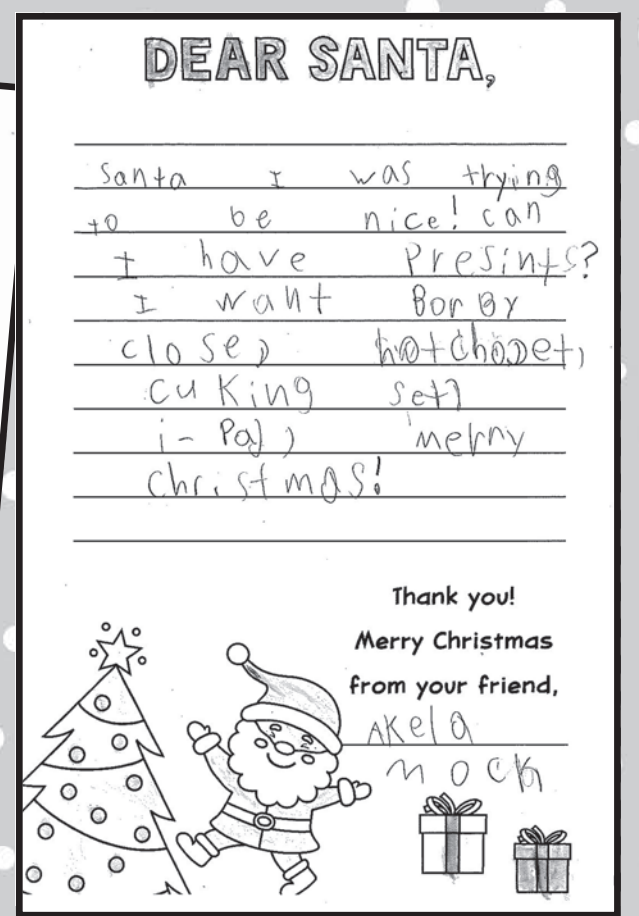 DEAR SANTA,
Santa I was trying
to be nice! can
I have Presints?
I want Borby
close, hotchocet,
cuking set,
i-Pad, merry
christmas!
Thank you!
Merry Christmas
from your friend,
AKela
mock